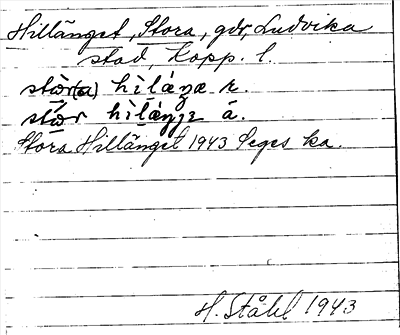 Hillänget, Stora, gdr, Ludvika
stad, Kopp. l.
stòr(a) hìláŋæ r.
stòr hìláŋje ä.
Stora Hillänget 1943 Seges ka.
H. Ståhl 1943